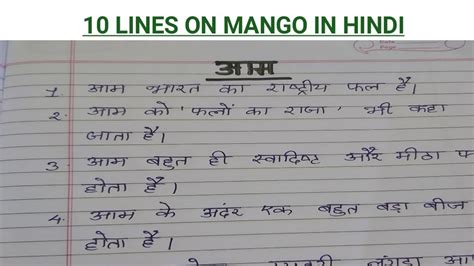 10 LINES ON MANGO IN HINDI
आम
1. आम भारत का राष्ट्रीय फल है।
2. आम को 'फलों का राजा' भी कहा
जाता है।
3. आम बहुत ही स्वादिष्ट और मीठा फ
होता है।
4. आम के अंदर एक बहुत बड़ा बीज
होता है।
लंगड़ा